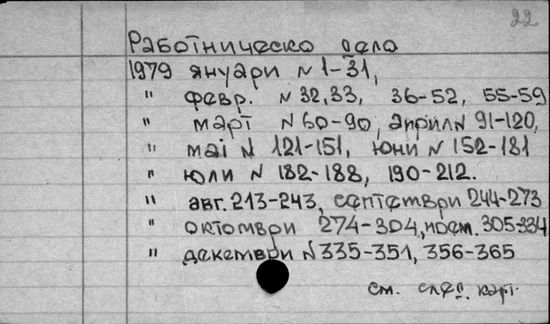 22
Работническо дело
1979 януари N 1-31,
" февр. N 32,33, 36-52, 55-59
" март N 60-90, април N 91-120,
" маi N 121-151, юни N 152-181
" юли N 182-188, 190-212.
" авг. 213-243, септември 244-273
" октомври 274-304, ноем. 305-334
" декември N 335-351, 356-365
см. след. карт.